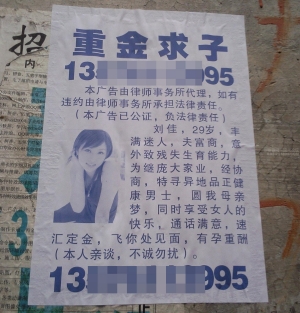 招
内
重金求子
13 995
本广告由律师事务所代理，如有
违约由律师事务所承担法律责任。
（本广告已公证，负法律责任）
刘佳，29岁，丰
满迷人，夫富商，意
外致残失生育能力，
为继庞大家业，经协
商，特寻异地品正健
康男士，圆我母亲
梦，同时享受女人的
快乐，通话满意，速
汇定金，飞你处见面，有孕重酬
（本人亲谈，不诚勿扰）。
13 995